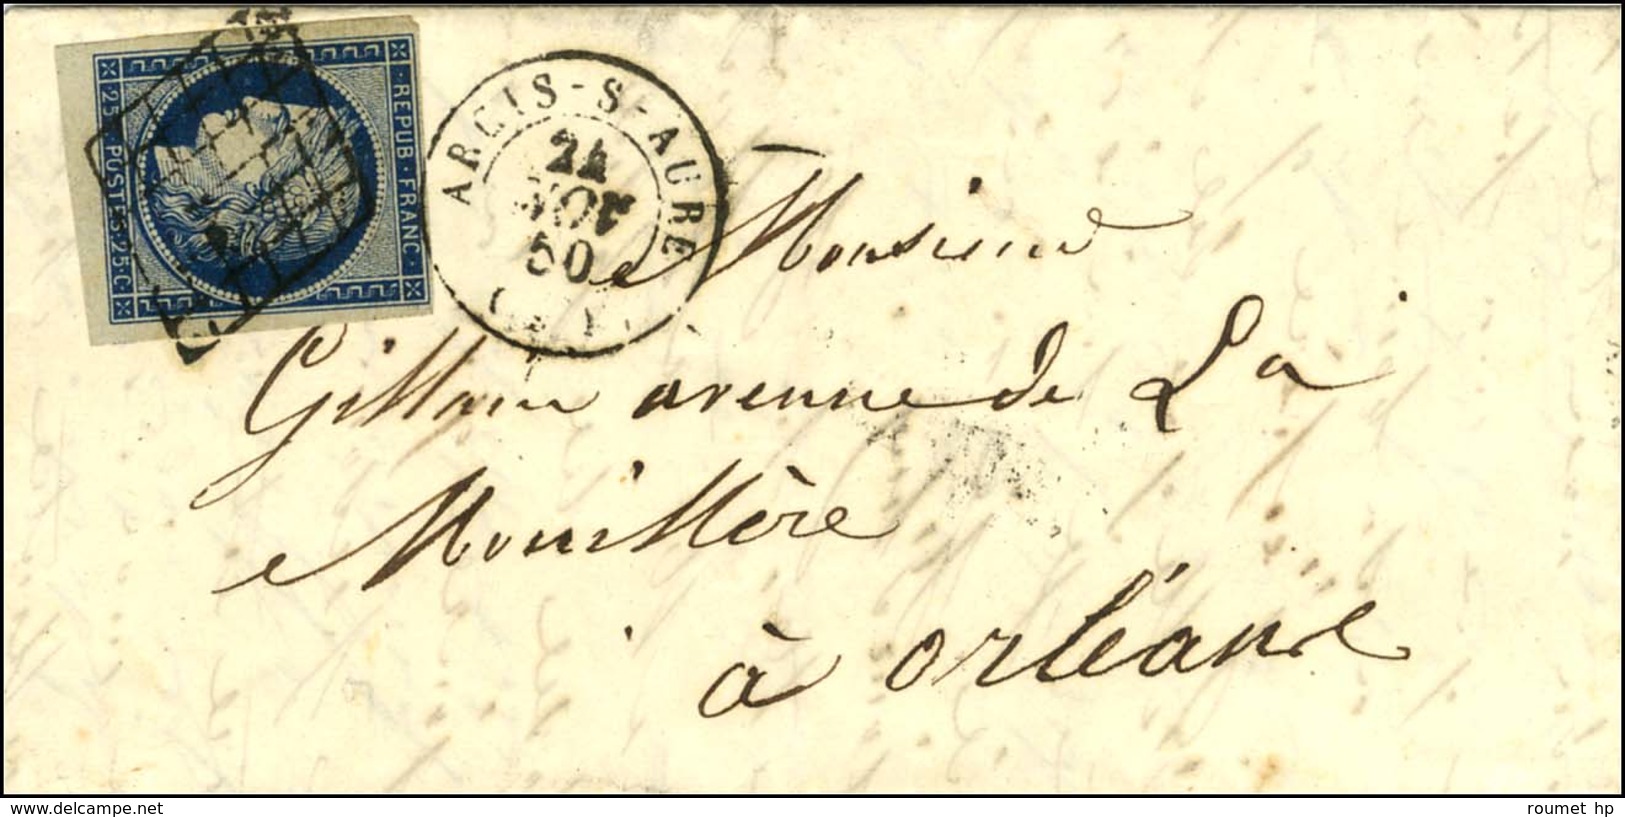 REPUB · FRANC ·
· 25 · POSTES · 25 · C
ARCIS-S-AUBE
24
NOV
50
Monsieur
Gillain avenue de La
Mouillère
à Orléans
www.delcampe.net
roumet hp